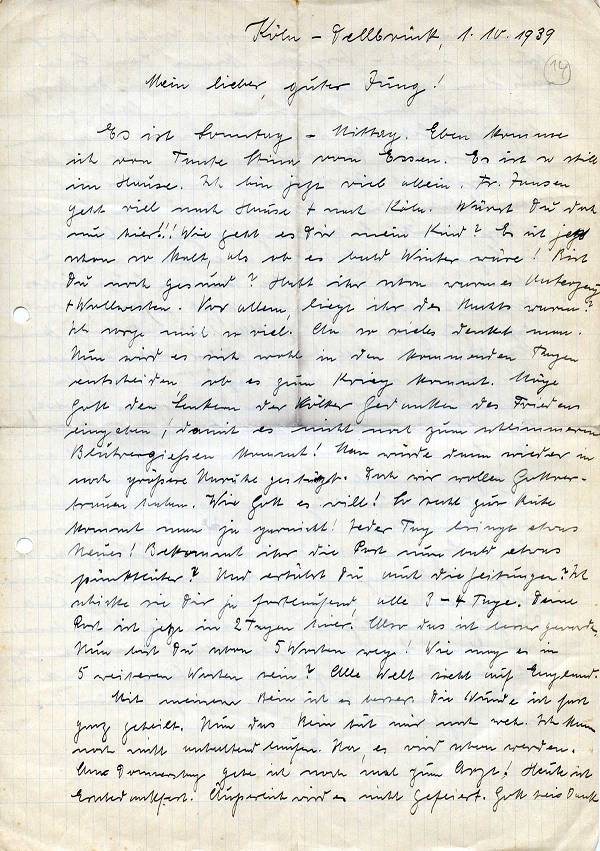 Köln – Dellbrück, 1.10.1939
14
Mein lieber, guter Jung!
Es ist Sonntag – Mittag. Eben komme
ich von Tante Stina von Essen. Es ist so still
im Hause. Ich bin jetzt viel allein. Fr. Jansen
geht viel nach Hause + nach Köln. Wärst Du doch
nur hier!!! Wie geht es Dir mein Kind? Es ist jetzt
schon so kalt, als ob es bald Winter wäre! Bist
Du noch gesund? Habt ihr schon warmes Unterzeug
+ Wollwesten. Vor allem, liegt ihr des Nachts warm?
Ich sorge mich so viel. An so vieles denket man.
Nun wird es sich wohl in den kommenden Tagen
entscheiden ob es zum Krieg kommt. Möge
Gott den Lenkern der Völker Gedanken des Friedens
eingeben, damit es nicht noch zum schlimmeren
Blutvergießen kommt! Man würde dann wieder in
noch größere Unruhe gestürzt. Doch wir wollen Gottver-
trauen haben. Wie Gott es will! So recht zur Ruhe
kommt man ja garnicht! Jeder Tag bringt etwas
Neues! Bekommt ihr die Post nun bald etwas
pünktlicher? Und erhälst Du auch die Zeitungen? Ich
schicke sie Dir ja fortlaufend, alle 3–4 Tage. Deine
Post ist jetzt in 2 Tagen hier. Also das ist besser geworden.
Nun bist Du schon 5 Wochen weg! Wie mag es in
5 weiteren Wochen sein? Alle Welt sieht auf England.
Mit meinem Bein ist es besser. Die Wunde ist fast
ganz geheilt. Nun das Bein tut mir noch weh. Ich kann
noch nicht anhaltend laufen. Na, es wird schon werden.
Am Donnerstag gehe ich noch mal zum Arzt! Heute ist
Erntedankfest. Äußerlich wird es nicht gefeiert. Gott sei Dank